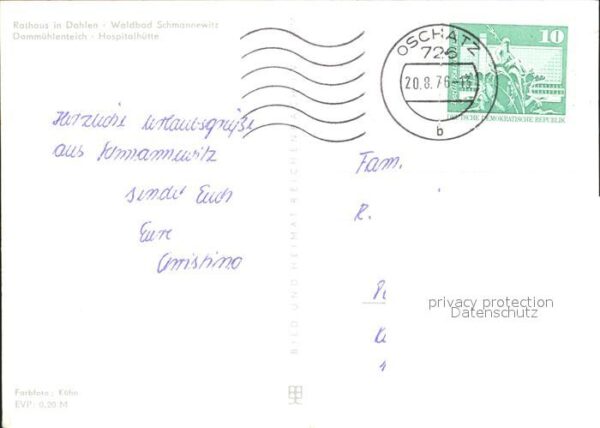 Rathaus in Dahlen - Waldbad Schmannewitz
Dammühlenteich - Hospitalhütte
OSCHATZ
726
20.8.76-18
b
10
DEUTSCHE DEMOKRATISCHE REPUBLIK
Herzliche Urlaubsgrüße
aus Schmannewitz
sendet Euch
Eure
Christina
BILD UND HEIMAT REICHENBA
Fam.
R.
privacy protection
Datenschutz
Farbfoto: Kühn
EVP: 0,20 M